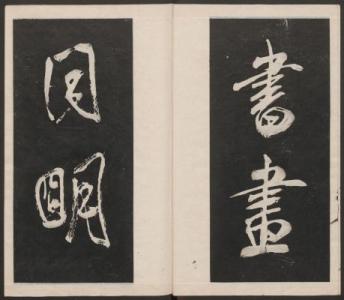 書畫
同明